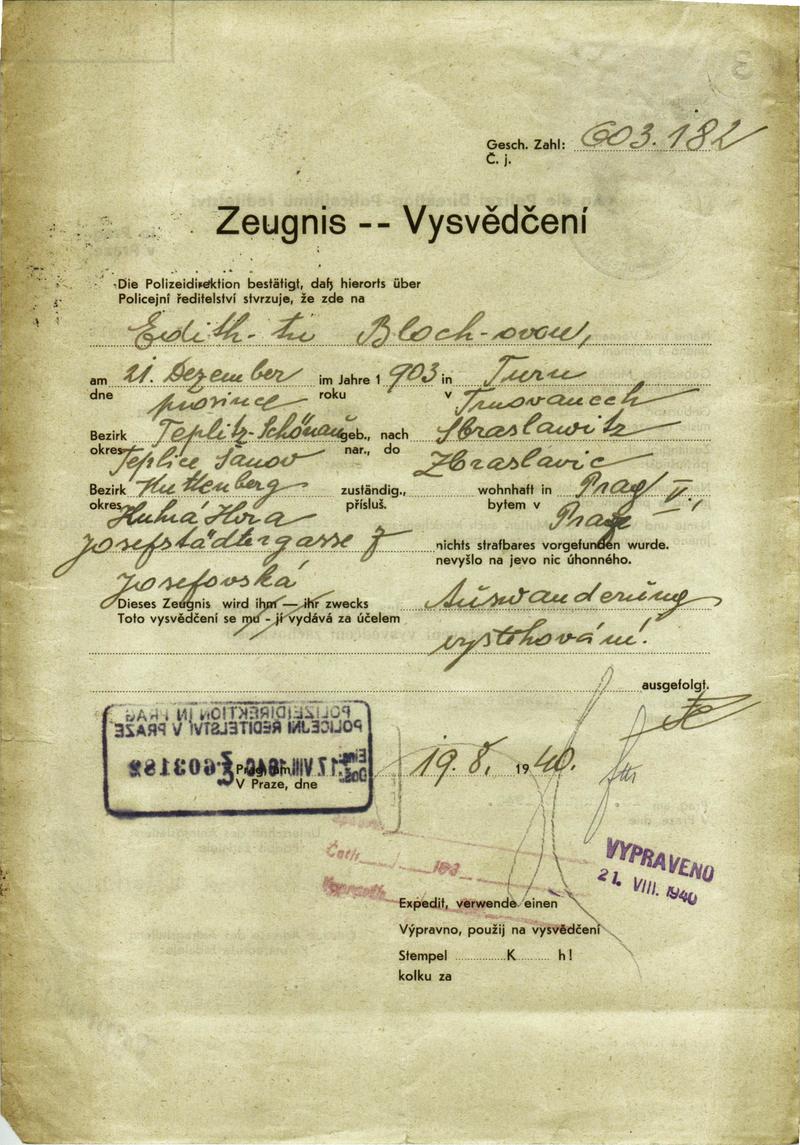 Gesch. Zahl: 603.182
Č. j.
Zeugnis -- Vysvědčení
Die Polizeidirektion bestätigt, daß hierorts über
Policejní ředitelství stvrzuje, že zde na
Edith-tu Bloch-ovou,
am 21. Dezember im Jahre 1903 in Turn
dne province roku v Trnovanech
Bezirk Teplitz-Schönau geb., nach Sbraslawitz
okres Teplice Šanov nar., do Zbraslavic
Bezirk Kuttenberg zuständig., wohnhaft in Prag V.,
okres Kutná Hora přísluš. bytem v Praze
Josefstädtergasse 7 nichts strafbares vorgefunden wurde.
nevyšlo na jevo nic úhonného.
Josefovská
Dieses Zeugnis wird ihm — ihr zwecks Auswanderung
Toto vysvědčení se mu - jí vydává za účelem
vystěhování.
ausgefolgt.
POLIZEIDIREKTION IN PRAG
POLICEJNÍ ŘEDITELSTVÍ V PRAZE
Eing.
Došlo 17. VIII. 1940 603182
Prag, am 19. 8. 1940.
V Praze, dne
VYPRAVENO
21. VIII. 1940
Expedit, verwende einen
Výpravno, použij na vysvědčení
Stempel K h!
kolku za